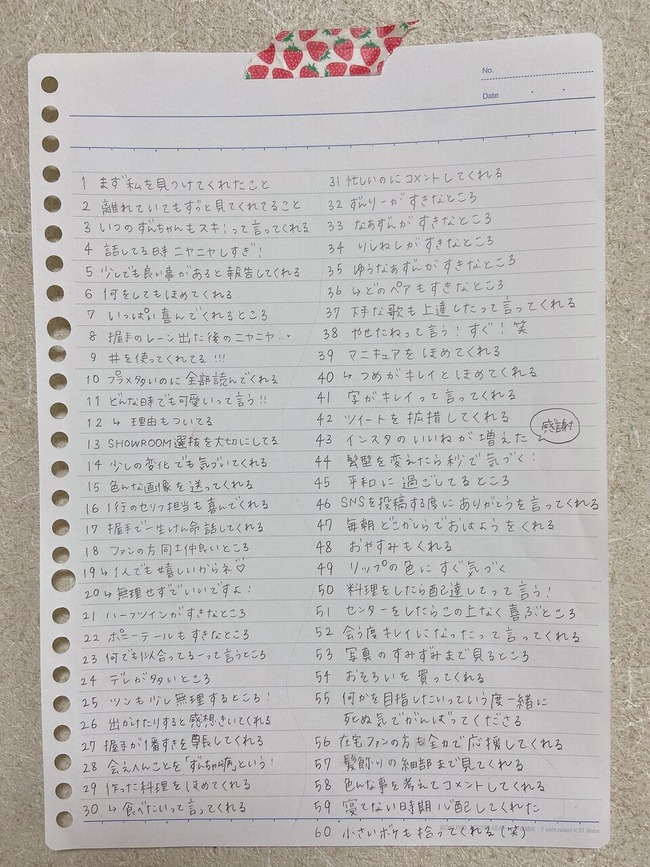 No.
Date
1 まず私を見つけてくれたこと
2 離れていてもずっと見てくれてること
3 いつのずんちゃんもスキ!って言ってくれる
4 話してる時ニヤニヤしすぎ!
5 少しでも良い事があると報告してくれる
6 何をしてもほめてくれる
7 いっぱい喜んでくれるところ
8 握手のレーン出た後のニヤニヤ…
9 #を使ってくれてる!!!
10 プラメ多いのに全部読んでくれる
11 どんな時でも可愛いって言う!!
12 ↳ 理由もついてる
13 SHOWROOM選抜を大切にしてる
14 少しの変化でも気づいてくれる
15 色んな画像を送ってくれる
16 1行のセリフ担当も喜んでくれる
17 握手で一生けん命話してくれる
18 ファンの方同士仲良いところ
19 ↳1人でも嬉しいからネ♡
20 ↳無理せずでいいですよ!
21 ハーフツインがすきなところ
22 ポニーテールもすきなところ
23 何でも似合ってるーって言うところ
24 デレが多いところ
25 ツンも少し無理するところ!
26 出かけたりすると感想きいてくれる
27 握手が1番すきを尊長してくれる
28 会えへんことを「ずんちゃ病」という!
29 作った料理をほめてくれる
30 ↳食べたいって言ってくれる
31 忙しいのにコメントしてくれる
32 ずんりーがすきなところ
33 なぁずんがすきなところ
34 りしねしがすきなところ
35 ゆうなぁずんがすきなところ
36 ↳どのペアもすきなところ
37 下手な歌も上達したって言ってくれる
38 やせたねって言う!すぐ!笑
39 マニキュアをほめてくれる
40 ↳つめがキレイとほめてくれる
41 字がキレイって言ってくれる
42 ツイートを拡措してくれる
43 インスタのいいねが増えた 感謝
44 髪型を変えたら秒で気づく!
45 平和に過ごしてるところ
46 SNSを投稿する度にありがとうを言ってくれる
47 毎朝どこかしらでおはようをくれる
48 おやすみもくれる
49 リップの色にすぐ気づく
50 料理をしたら配達してって言う!
51 センターをしたらこの上なく喜ぶところ
52 会う度キレイになったって言ってくれる
53 写真のすみずみまで見るところ
54 おそろいを買ってくれる
55 何かを目指したいっていう度一緒に
死ぬ気でがんばってくださる
56 在宅ファンの方も全力で応援してくれる
57 髪飾りの細部まで見てくれる
58 色んな事を考えてコメントしてくれる
59 寝てない時期心配してくれた
60 小さいボケも拾ってくれる(笑)